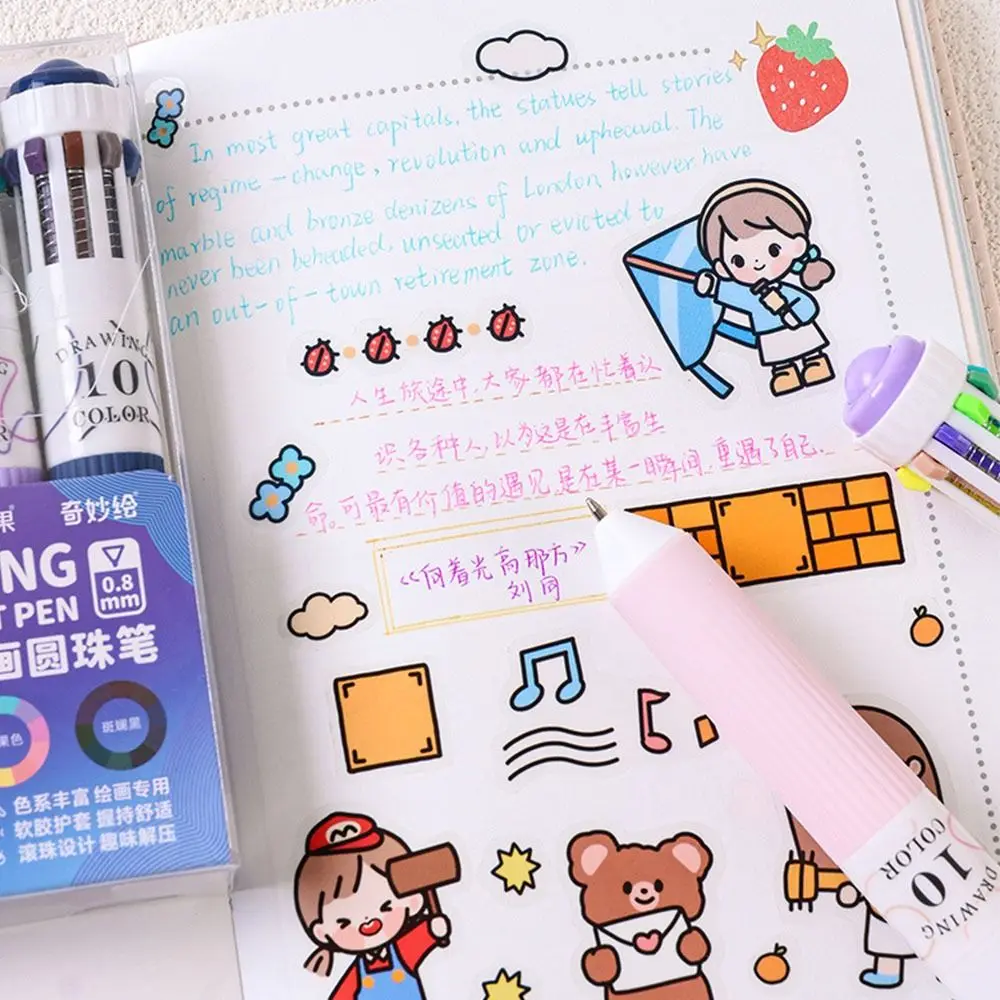 In most great capitals, the statues tell stories
of regime-change, revolution and upheaval. The
marble and bronze denizens of London however have
never been beheaded, unseated or evicted to
an out-of-town retirement zone.
人生旅途中,大家都在忙着认
识各种人,以为这是在丰富生
命。可最有价值的遇见是在某一瞬间,重遇了自己.
《向着光亮那方》
刘同
DRAWING
10
COLOR
果 奇妙绘
0.8
mm
T PEN
画圆珠笔
果色
斑斓黑
色系丰富 绘画专用
软胶护套 握持舒适
滚珠设计 趣味解压
M
DRAWING
10
COLOR